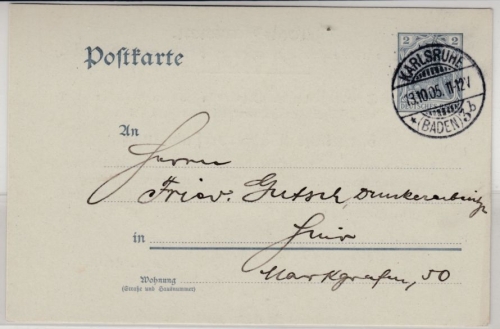 Postkarte
2 2
KARLSRUHE
13.10.05. 11-12V
*(BADEN) 3b
An
Herrn
Friedr. Gutsch,
in
Hier
Markgrafen, 50
Wohnung
(Straße und Hausnummer)